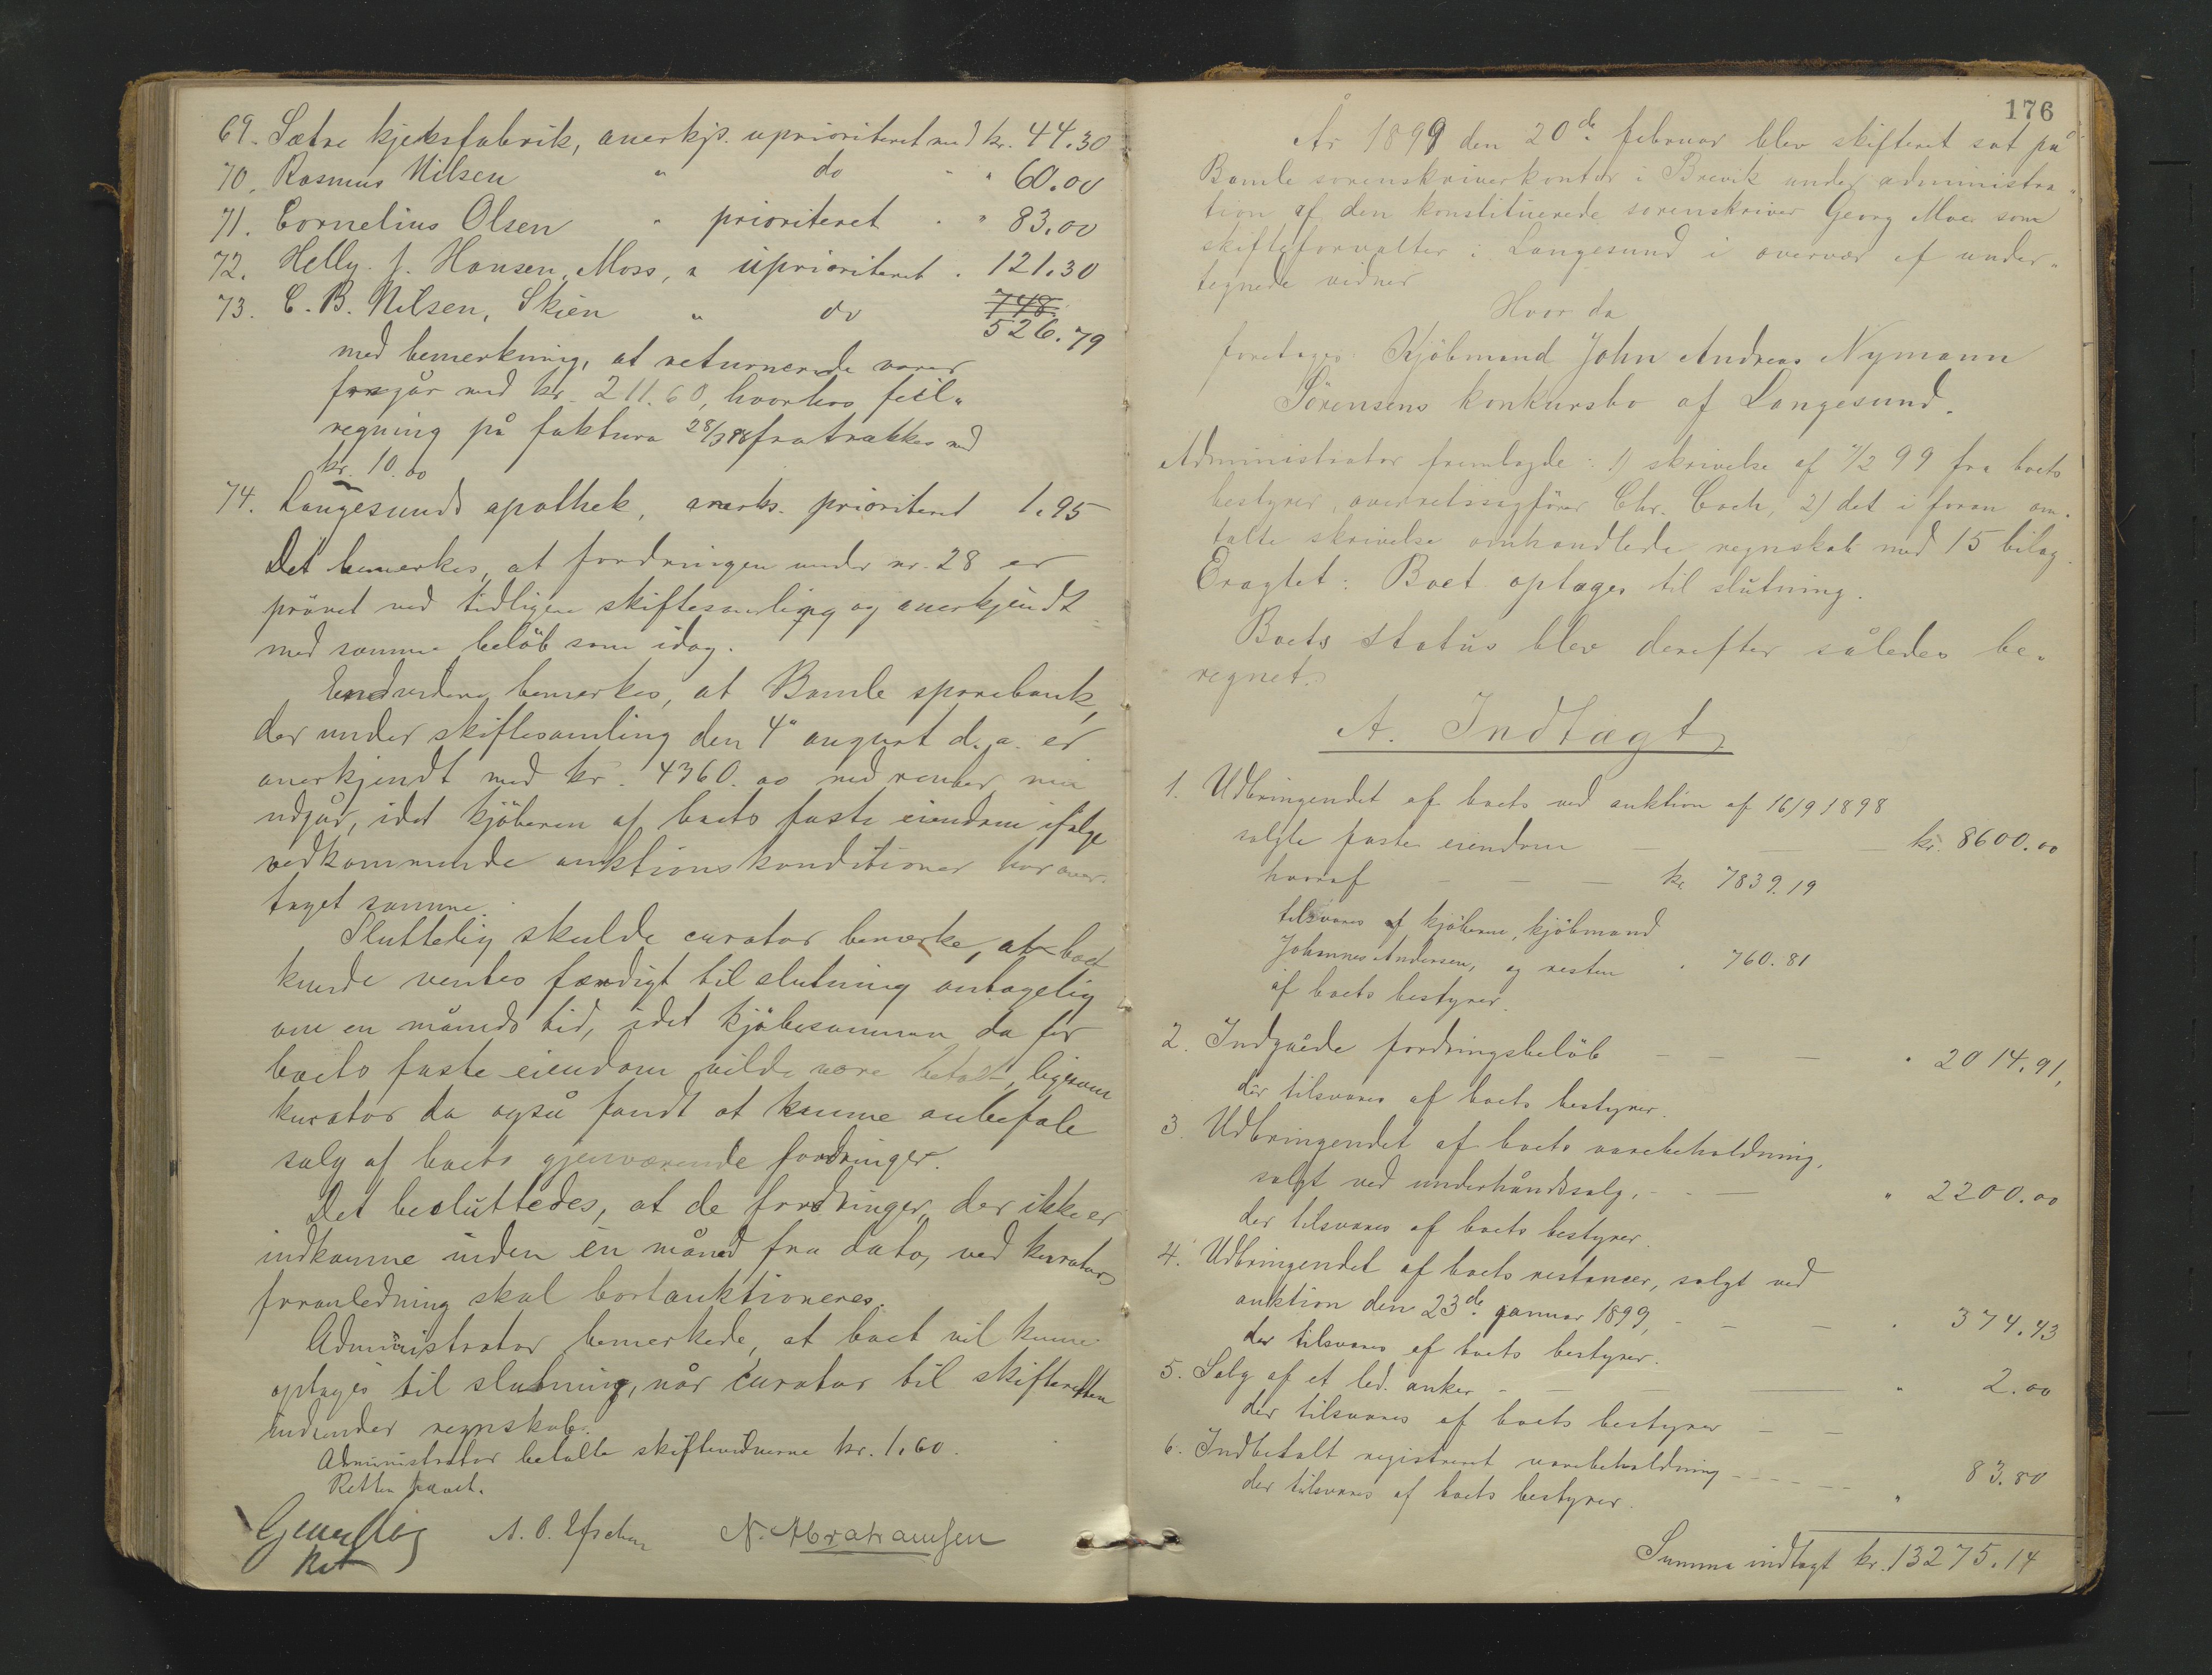 69. Sætre kjeksfabrik, anerkjs. uprioriteret med kr. 44.30
70. Rasmus Nilsen " do - " 60.00
71. Cornelius Olsen " prioriteret . " 83.00
72. Helly J. Hansen, Moss, " uprioriteret . 121.30
73. C. B. Nilsen, Skien " do 748.
526.79
med bemerkning, at returnerede varer
fragår med kr. 211.60, hvorhos feil-
regning på faktura 28/3 98 fratrækkes med
kr. 10.00
74. Langesunds apothek, anerks. prioriteret 1.95
Det bemerkes, at fordringen under nr. 28 er
prövet ved tidligere skiftesamling og anerkjendt
med samme belöb som idag.
Endvidere bemerkes, at Bamle sparebank,
der under skiftesamling den 4de august d. a. er
anerkjendt med kr. 4360.00 med renter nu
udgår, idet kjöberen af boets faste eiendom ifölge
vedkommende auktionskonditioner har over-
taget samme.
Sluttelig skulde curator bemærke, at boet
kunde ventes færdigt til slutning antagelig
om en måneds tid, idet kjöbesummen da for
boets faste eiendom vilde være betalt, ligesom
kurator da også fandt at kunne anbefale
salg af boets gjenværende fordringer.
Det besluttedes, at de fordringer, der ikke er
indkomne inden én måned fra dato, ved kurators
foranledning skal bortauktioneres.
Administrator bemerkede, at boet vil kunne
optages til slutning, når curator til skifteretten
indsender regnskab.
Administrator betalte skiftevidnerne kr. 1.60.
Retten hævet.
N. Abrahamsen
176
År 1899 den 20de februar blev skifteret sat på
Bamle sorenskriverkontor i Brevik under administra-
tion af den konstituerede sorenskriver Georg Moe som
skifteforvalter i Langesund i overvær af under-
tegnede vidner
Hvor da
foretoges: Kjöbmand John Andreas Nymann
Sörensens konkursbo af Langesund.
Administrator fremlagde: 1) skrivelse af /2 99 fra boets
bestyrer, overretssagförer Chr. Coch, 2) det i foran om-
talte skrivelse omhandlede regnskab med 15 bilag.
Eragtet: Boet optages til slutning.
Boets status blev derefter således be-
regnet:
A. Indtægt
1. Udbringendet af boets ved auktion af 16/9 1898
solgte faste eiendom — — — kr. 8600.00
hvoraf — — — kr. 7839.19
tilsvares af kjöberen, kjöbmand
Johannes Andersen, og resten " 760.81
af boets bestyrer.
2. Indgåede fordringsbelöb — — — " 2014.91,
der tilsvares af boets bestyrer.
3. Udbringendet af boets varebeholdning,
solgt ved underhåndssalg, - - — " 2200.00
der tilsvares af boets bestyrer.
4. Udbringendet af boets restancer, solgt ved
auktion den 23de januar 1899, - — — " 374.43
der tilsvares af boets bestyrer.
5. Salg af et led. anker - — — — " 2.00
der tilsvares af boets bestyrer — —
6. Indbetalt registreret varebeholdning - - - - 83.80
der tilsvares af boets bestyrer. "
Summa indtægt kr. 13275.14